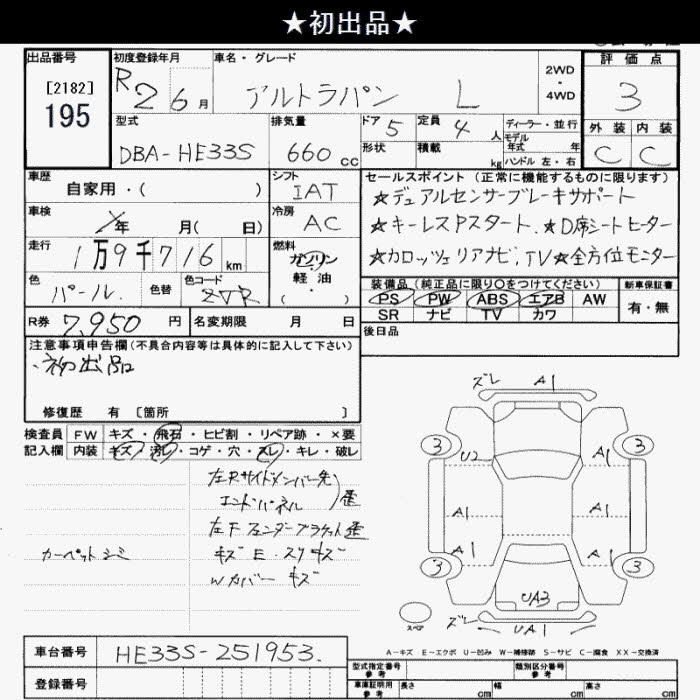 ★初出品★
出品番号
[2182]
195
初度登録年月
R2 6月
車名・グレード
アルトラパン L
2WD
・
4WD
評価点
3
外装 内装
C C
型式
DBA-HE33S
排気量
660 cc
ドア 5
形状
定員 4人
積載 kg
ディーラー・並行
モデル年式 年
ハンドル 左・右
車歴
自家用・( )
シフト
IAT
車検
年 月( 日)
冷房
AC
走行
1万9千716km
燃料
ガソリン
軽油
・( )
色
パール
色替
色コード
ZVR
セールスポイント (正常に機能するものに限ります)
★デュアルセンサーブレーキサポート
★キーレスPスタート.★D席シートヒーター
★カロッツェリアナビ,TV★全方位モニター
装備品 (純正品に限り○をつけてください)
PS PW ABS エアB AW
SR ナビ TV カワ
新車保証書
有・無
R券 7,950円
名変期限 月 日
後日品
注意事項申告欄(不具合内容等は具体的に記入して下さい)
・初出品
修復歴 有 [箇所 ]
検査員記入欄
FW キズ・飛石・ヒビ割・リペア跡・×要
内装 キズ・汚レ・コゲ・穴・スレ・キレ・破レ
左Rサイドメンバー先
エンドパネル )歪
左Fフェンダーブラケット歪
カーペットシミ
キズ E・スリキズ
Wカバー キズ
ズレ A1
3 3
U2
A1 A1
A1 A1
3 3
UA3
スペア
ズレ UA1
A-キズ E-エクボ U-凹み W-補修跡 S-サビ C-腐食 XX-交換済
車台番号 HE33S-251953.
登録番号
型式指定番号 参考
類別区分番号 参考
車庫証明用 参考 長さ cm 幅 cm 高さ cm